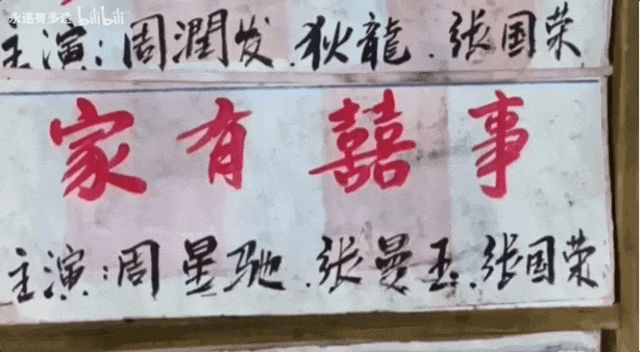 永远有多远 bilibili
主演:周潤发.狄龍.张国荣
家有囍事
主演:周星驰.张曼玉.张国荣